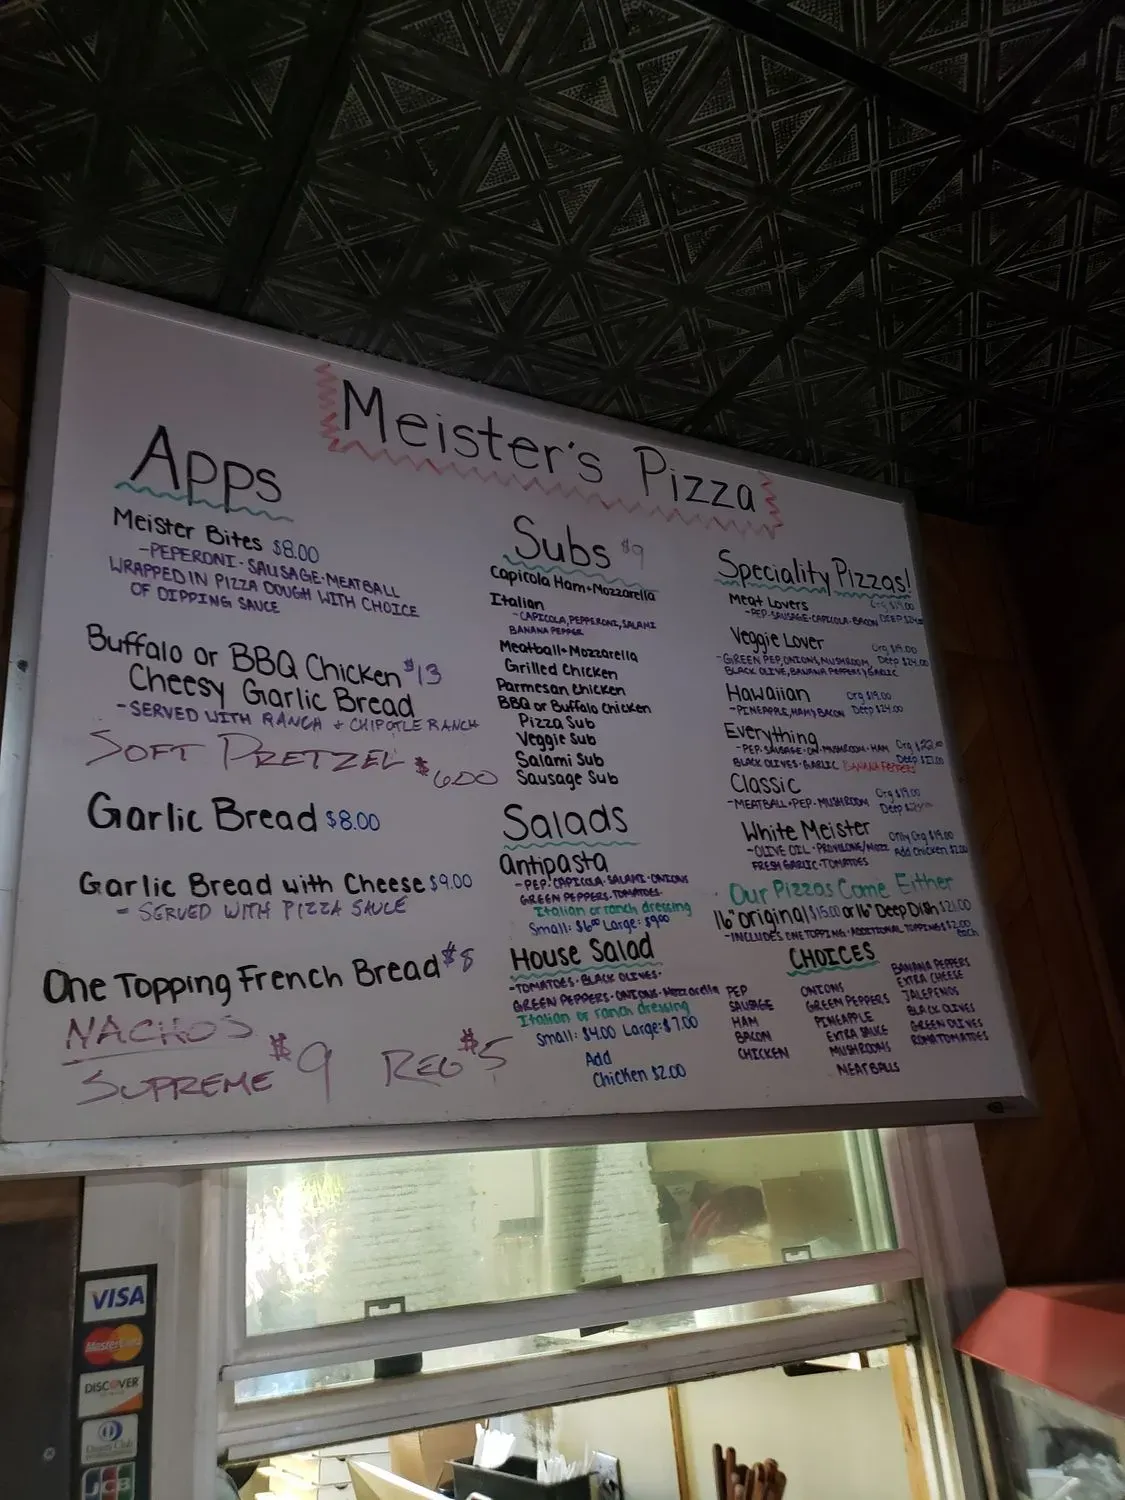 Meister's Pizza
Apps
Meister Bites $8.00
-PEPERONI·SAUSAGE·MEATBALL
WRAPPED IN PIZZA DOUGH WITH CHOICE
OF DIPPING SAUCE
Buffalo or BBQ Chicken $13
Cheesy Garlic Bread
-SERVED WITH RANCH + CHIPOTLE RANCH
SOFT PRETZEL $6.00
Garlic Bread $8.00
Garlic Bread with Cheese $9.00
- SERVED WITH PIZZA SAUCE
One Topping French Bread $8
NACHOS
SUPREME $9 REG $5
Subs $9
Capicola Ham+Mozzarella
Italian
-CAPICOLA, PEPPERONI, SALAMI
BANANA PEPPER
Meatball+Mozzarella
Grilled Chicken
Parmesan Chicken
BBQ or Buffalo Chicken
Pizza Sub
Veggie Sub
Salami Sub
Sausage Sub
Salads
Antipasta
-PEP·CAPICOLA·SALAMI·ONIONS
GREEN PEPPERS·TOMATOES·
Italian or ranch dressing
Small: $6.00 Large: $9.00
House Salad
-TOMATOES·BLACK OLIVES·
GREEN PEPPERS·ONIONS·Mozzarella
Italian or ranch dressing
Small: $4.00 Large: $7.00
Add
Chicken $2.00
Speciality Pizzas!
Meat Lovers Org $19.00
-PEP·SAUSAGE·CAPICOLA·BACON DEEP
Veggie Lover Org $19.00
-GREEN PEP, ONIONS, MUSHROOM Deep $24.00
BLACK OLIVE, BANANA PEPPERS & GARLIC
Hawaiian Org $19.00
-PINEAPPLE, HAM & BACON Deep $24.00
Everything
-PEP·SAUSAGE·ON·MUSHROOM·HAM Org $22.00
BLACK OLIVES·GARLIC BANANA PEPPERS Deep
Classic Org $19.00
-MEATBALL·PEP·MUSHROOM Deep
White Meister Only Org $19.00
-OLIVE OIL·PROVILONE/Mozz Add Chicken $2.00
FRESH GARLIC·TOMATOES
Our Pizzas Come Either
16" original $15.00 or 16" Deep Dish $21.00
-INCLUDES ONE TOPPING·ADDITIONAL TOPPINGS $2.00 each
CHOICES
PEP
SAUSAGE
HAM
BACON
CHICKEN
ONIONS
GREEN PEPPERS
PINEAPPLE
EXTRA SAUCE
MUSHROOMS
MEATBALLS
BANANA PEPPERS
EXTRA CHEESE
JALEPENOS
BLACK OLIVES
GREEN OLIVES
ROMA TOMATOES
VISA
MasterCard
DISCOVER
Diners Club
JCB